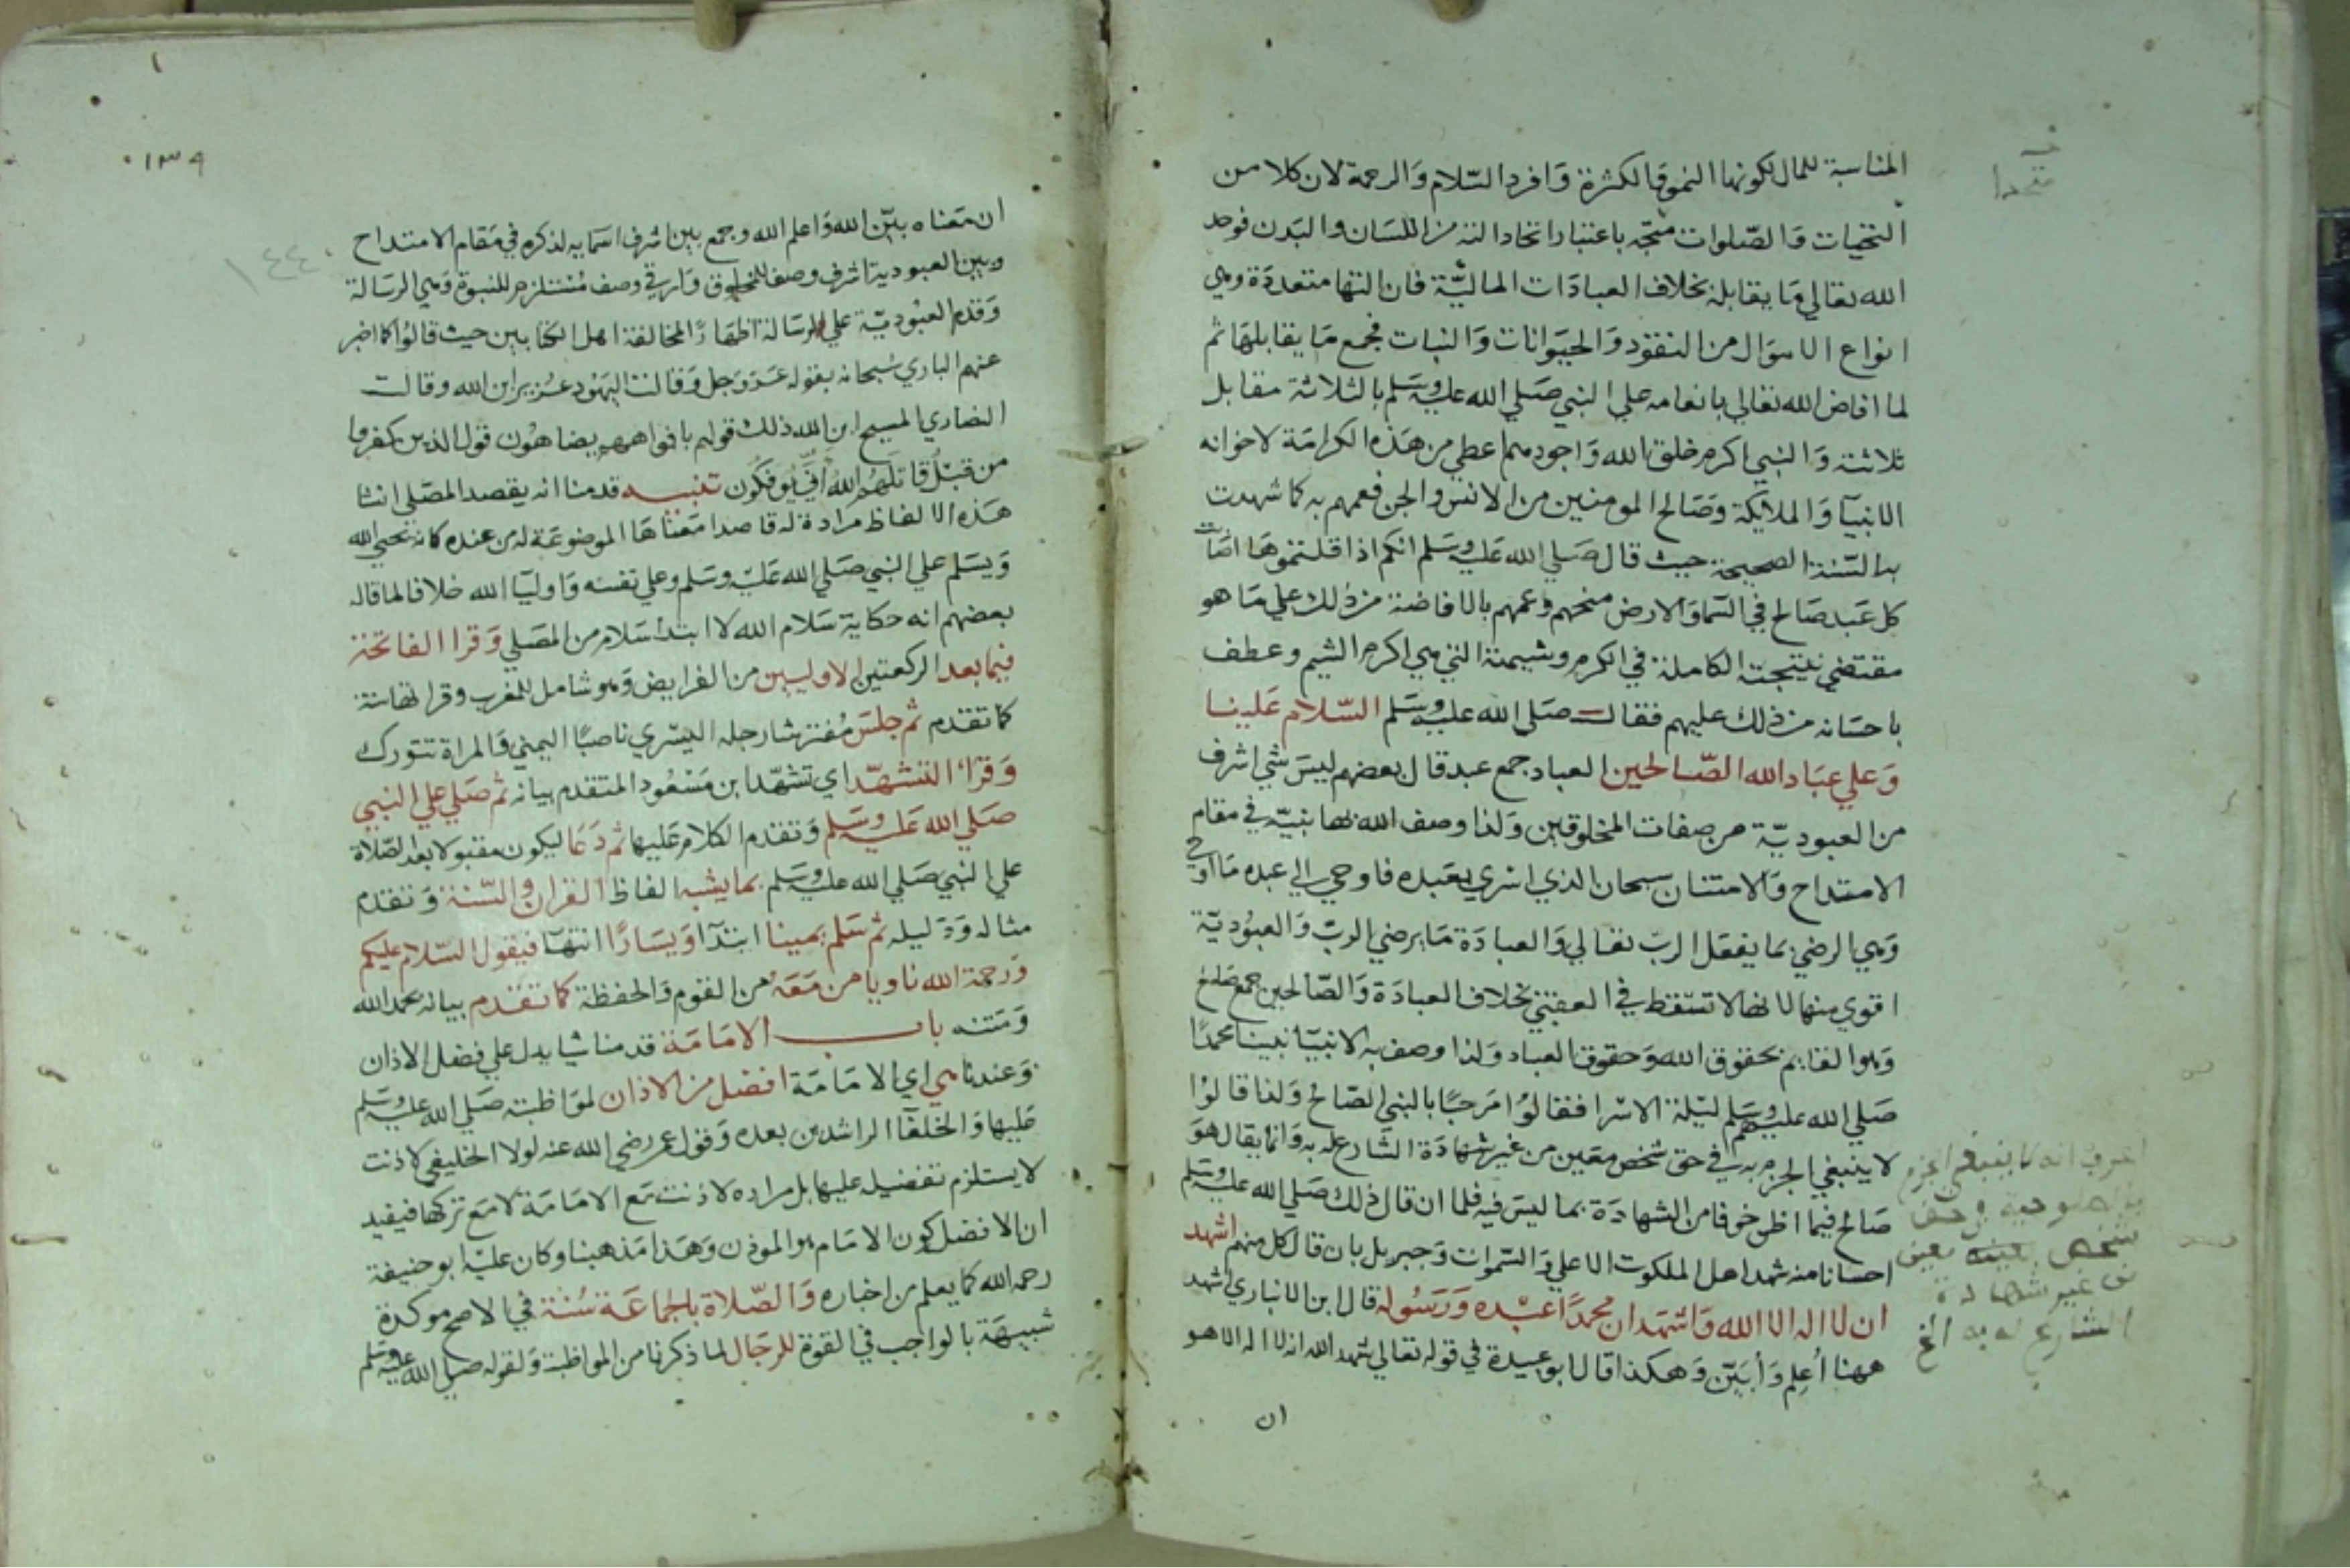 المناسبة للمال لكونها النمو والكثرة وافرد السلام والرحمة لان كلا من
التحيات والصلوات متجه باعتبار اتحاد النه من اللسان والبدن فوحد
الله تعالي ما يقابله بخلاف العبادات المالية فان التها متعددة وهي
انواع الاموال من النقود والحيوانات والنبات فجمع ما يقابلها ثم
لما افاض الله تعالي بانعامه علي النبي صلي الله عليه وسلم بالثلاثة مقابل
ثلاثته والنبي اكرم خلق الله واجودهم اعطي من هذه الكرامة لاخوانه
الانبيآ والملايكة وصالح المومنين من الانس والجن فعمهم به كما شهدت
به السنة الصحيحة حيث قال صلي الله عليه وسلم انكم اذا قلتموها اصابت
كل عبد صالح في السما والارض منحهم وعمهم بالافاضة من ذلك علي ما هو
مقتضي نتيجته الكاملة في الكرم وشيمته التي هي اكرم الشيم وعطف
باحسانه من ذلك عليهم فقال صلي الله عليه وسلم السلام علينا
وعلي عباد الله الصالحين العباد جمع عبد قال بعضهم ليس شي اشرف
من العبودية من صفات المخلوقين ولذا وصف الله بها نبيه في مقام
الامتداح والامتنان سبحان الذي اسري بعبده فاوحي الي عبده ما اوحي
وهي الرضي بما يفعل الرب تعالي والعبادة ما يرضي الرب والعبودية
اقوي منها لانها لا تسقط في العقبي بخلاف العبادة والصالحين جمع صالح
وهو القايم بحقوق الله وحقوق العباد ولذا وصف به الانبيا نبينا محمدا
صلي الله عليه وسلم ليلة الاسرا فقالوا مرحبا بالنبي الصالح ولذا قالوا
لا ينبغي الجزم به في حق شخص معين من غير شهادة الشارع له به وانما يقال هو
صالح فيما اظن خوفا من الشهادة بما ليس فيه فلما ان قال ذلك صلي الله عليه وسلم
احسانا منه شهد اهل الملكوت الاعلي والسموات وجبريل بان قال كل منهم اشهد
ان لا اله الا الله واشهد ان محمدا عبده ورسوله قال ابن الانباري اشهد
ههنا اُعلِم وأبيّن وهكذا قال ابو عبيدة في قوله تعالي شهد الله انه لا اله الا هو
ان
اعرف انه لا ينبغي الجزم
شخص بعينه معين
من غير شهادة
الشارع له به الخ
١٣٩
١٤٤
ان معناه بيّن الله واعلم الله وجمع بين اشرف اسمايه لذكره في مقام الامتداح
وبين العبودية اشرف وصف للمخلوق وارقي وصف مستلزم للنبوة وهي الرسالة
وقدم العبودية علي الرسالة اظهارا لمخالفة اهل الكتابين حيث قالوا كما اخبر
عنهم الباري سبحانه بقوله عز وجل وقالت اليهود عزير ابن الله وقالت
النصاري المسيح ابن الله ذلك قولهم بافواههم يضاهون قول الذين كفروا
من قبل قاتلهم الله اني يوفكون تنبيه قدمنا انه يقصد المصلي انشا
هذه الالفاظ مرادة له قاصدا معناها الموضوعة له من عنده كانه يحيي الله
ويسلم علي النبي صلي الله عليه وسلم وعلي نفسه واوليا الله خلافا لما قاله
بعضهم انه حكاية سلام الله لا ابتدا سلام من المصلي وقرا الفاتحة
فيما بعد الركعتين الاوليين من الفرايض وهو شامل للمغرب وقراتها سنة
كما تقدم ثم جلس مفترشا رجله اليسري ناصبا اليمني والمراة تتورك
وقرا التشهد اي تشهد ابن مسعود المتقدم بيانه ثم صلي علي النبي
صلي الله عليه وسلم وتقدم الكلام عليها ثم دعا ليكون مقبولا بعد الصلاة
علي النبي صلي الله عليه وسلم بما يشبه الفاظ القران والسنة وتقدم
مثاله ودليله ثم سلم يمينا ابتدآ ويسارا انتهآ فيقول السلام عليكم
ورحمة الله ناويا من معه من القوم والحفظة كما تقدم بيانه بحمد الله
ومنه باب الامامة قدمنا شيا يدل علي فضل الاذان
وعندنا هي اي الامامة افضل من الاذان لمواظبته صلي الله عليه وسلم
عليها والخلفآ الراشدين بعده وقول عمر رضي الله عنه لولا الخليفي لاذنت
لا يستلزم تفضيله عليها بل مراده لاذنت مع الامامة لا مع تركها فيفيد
ان الافضل كون الامام هو الموذن وهذا مذهبنا وكان عليه ابو حنيفة
رحمه الله كما يعلم من اخباره والصلاة بالجماعة سنة في الاصح موكدة
شبيهة بالواجب في القوة للرجال لما ذكرنا من المواظبة ولقوله صلي الله عليه وسلم